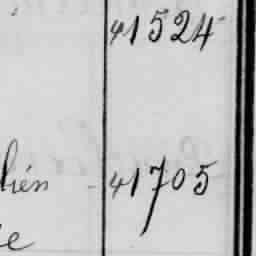 41524
hién 41705
e